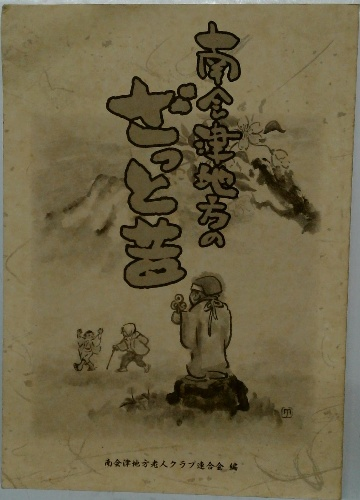 南会津地方の
ざっと昔
南会津地方老人クラブ連合会 編